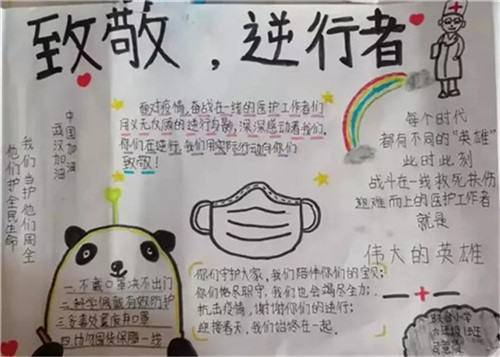 致敬，逆行者
中国加油
武汉加油
我们当护他们周全
他们护全民生命
面对疫情，奋战在一线的医护工作者们
用义无反顾的逆行身影，深深感动着我们，
你们在逆行，我们用实际行动向你们
致敬！
每个时代
都有不同的“英雄”
此时此刻
战斗在一线救死扶伤
迎难而上的医护工作者
就是
伟大的英雄
一.不戴口罩决不出门
二.科学佩戴有效防护
三.妥善处置废弃口罩
四.
你们守护大家，我们陪伴你们的宝贝；
你们恪尽职守，我们也会竭尽全力；
抗击疫情，谢谢你们的逆行；
迎接春天，我们始终在一起。
小学